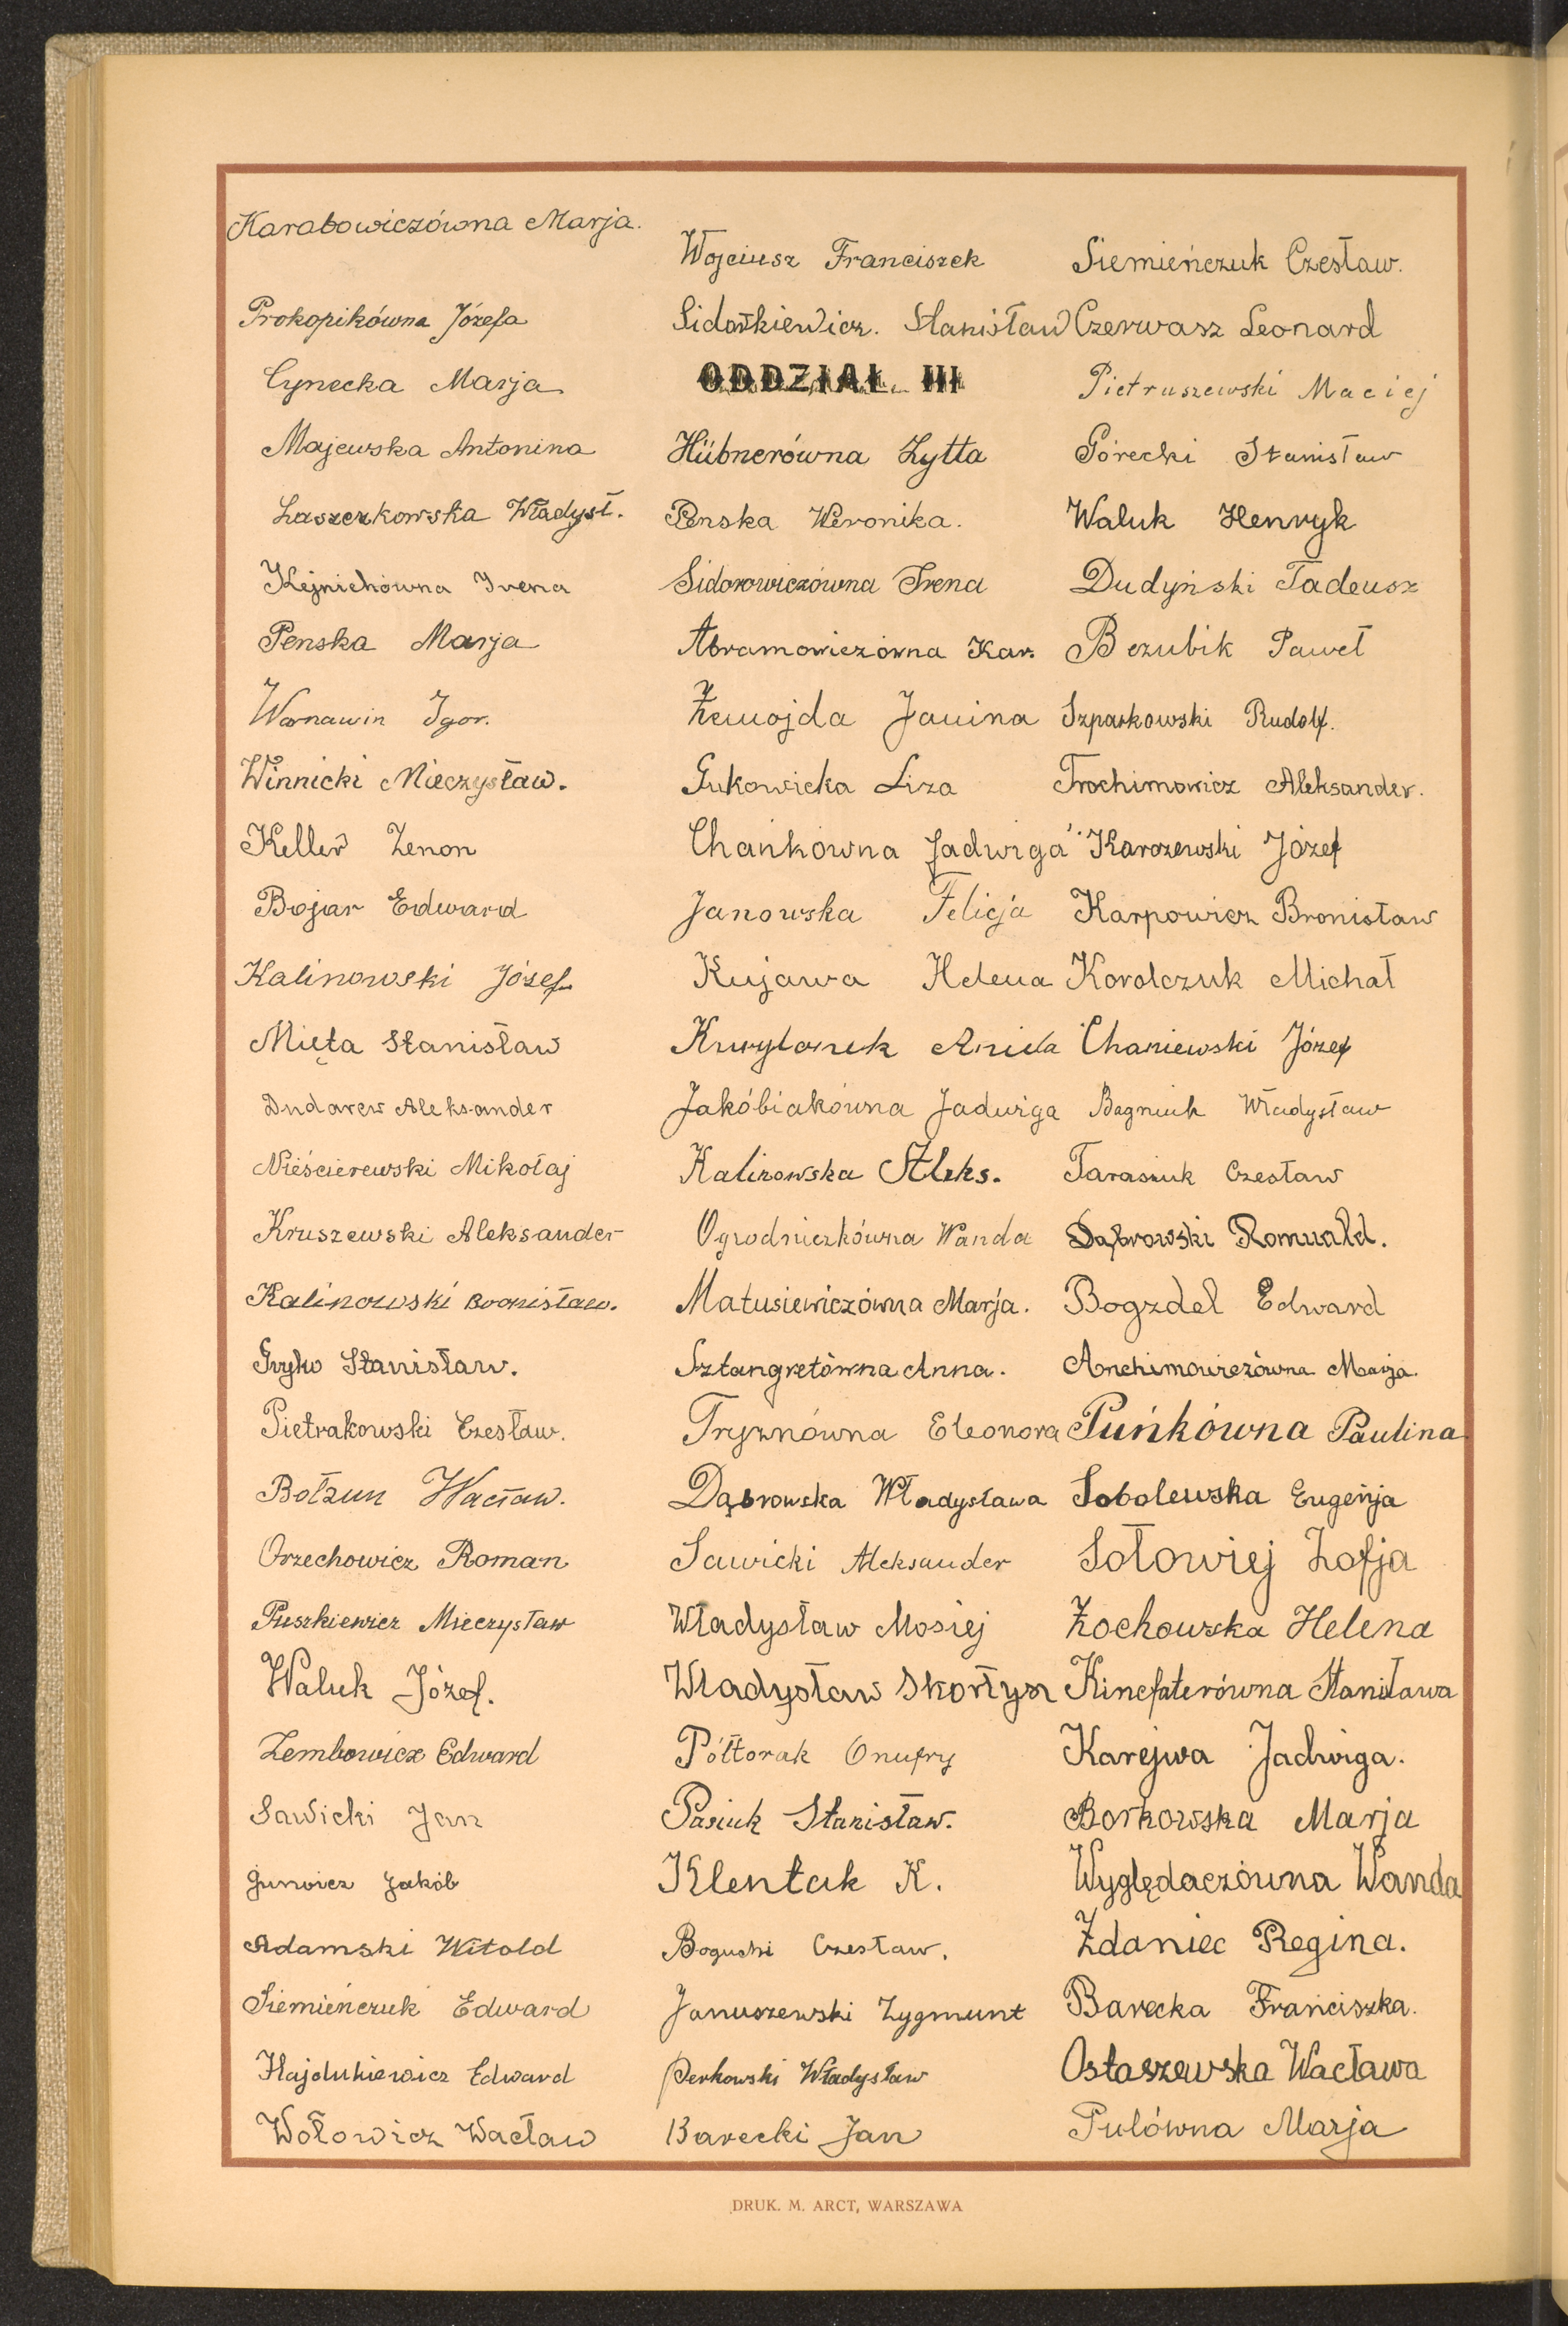 Karabowiczówna Marja.
Prokopikówna Józefa
Cynecka Marja
Majewska Antonina
Laszczkowska Władysł.
Kejnichówna Irena
Penska Marja
Warnawin Igor.
Winnicki Mieczysław.
Keller Zenon
Bojar Edward
Kalinowski Józef
Mięta Stanisław
Dudarew Aleksander
Nieścierewski Mikołaj
Kruszewski Aleksander
Kalinowski Bronisław.
Gryko Stanisław.
Pietrakowski Czesław.
Bołzun Wacław.
Orzechowicz Roman
Puszkiewicz Mieczysław
Waluk Józef.
Zembowicz Edward
Sawicki Jan
Junowicz Jakób
Adamski Witold
Siemieńczuk Edward
Hajdukiewicz Edward
Wołowicz Wacław
Wojciusz Franciszek
Sidorkiewicz. Stanisław
ODDZIAŁ III
Hübnerówna Zytta
Penska Weronika.
Sidorowiczówna Irena
Abramowiczówna Kar.
Żemojda Janina
Gukowicka Liza
Chańkówna Jadwiga
Janowska Felicja
Kujawa Helena
Aniela
Jakóbiakówna Jadwiga
Kalinowska Aleks.
Ogrodniczkówna Wanda
Matusiewiczówna Marja.
Sztangretówna Anna.
Tryznówna Eleonora
Dąbrowska Władysława
Sawicki Aleksander
Władysław Mosiej
Władysław Skorłysz
Półtorak Onufry
Pasiuk Stanisław.
Klentak K.
Bogucki Czesław.
Januszewski Zygmunt
Perkowski Władysław
Barecki Jan
Siemieńczuk Czesław.
Czerwasz Leonard
Pietruszewski Maciej
Górecki Stanisław
Waluk Henryk
Dudyński Tadeusz
Bezubik Paweł
Szparkowski Rudolf.
Trochimowicz Aleksander.
Karozewski Józef
Karpowicz Bronisław
Korolczuk Michał
Chaniewski Józef
Bagniuk Władysław
Tarasiuk Czesław
Dąbrowski Romuald.
Bogzdel Edward
Anchimowiczówna Marja.
Puńkówna Paulina
Sobolewska Eugenja
Sołowiej Zofja
Żochowska Helena
Kinefaterówna Stanisława
Karejwa Jadwiga.
Borkowska Marja
Wyględaczówna Wanda
Żdaniec Regina.
Barecka Franciszka.
Ostaszewska Wacława
Pulówna Marja
DRUK. M. ARCT, WARSZAWA